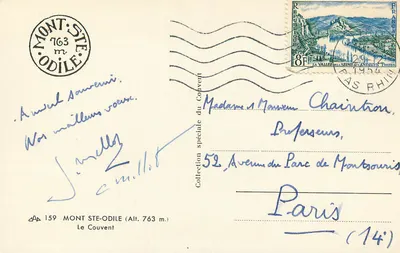 MONT·STE·ODILE·
763
m
Amical souvenir.
Nos meilleurs vœux.
159 MONT STE-ODILE (Alt. 763 m.)
Le Couvent
Collection spéciale du Couvent
8F
1954
BAS RHIN
Madame & Monsieur Chaintron
Professeurs,
52, Avenue du Parc de Montsouris
Paris
(14e)